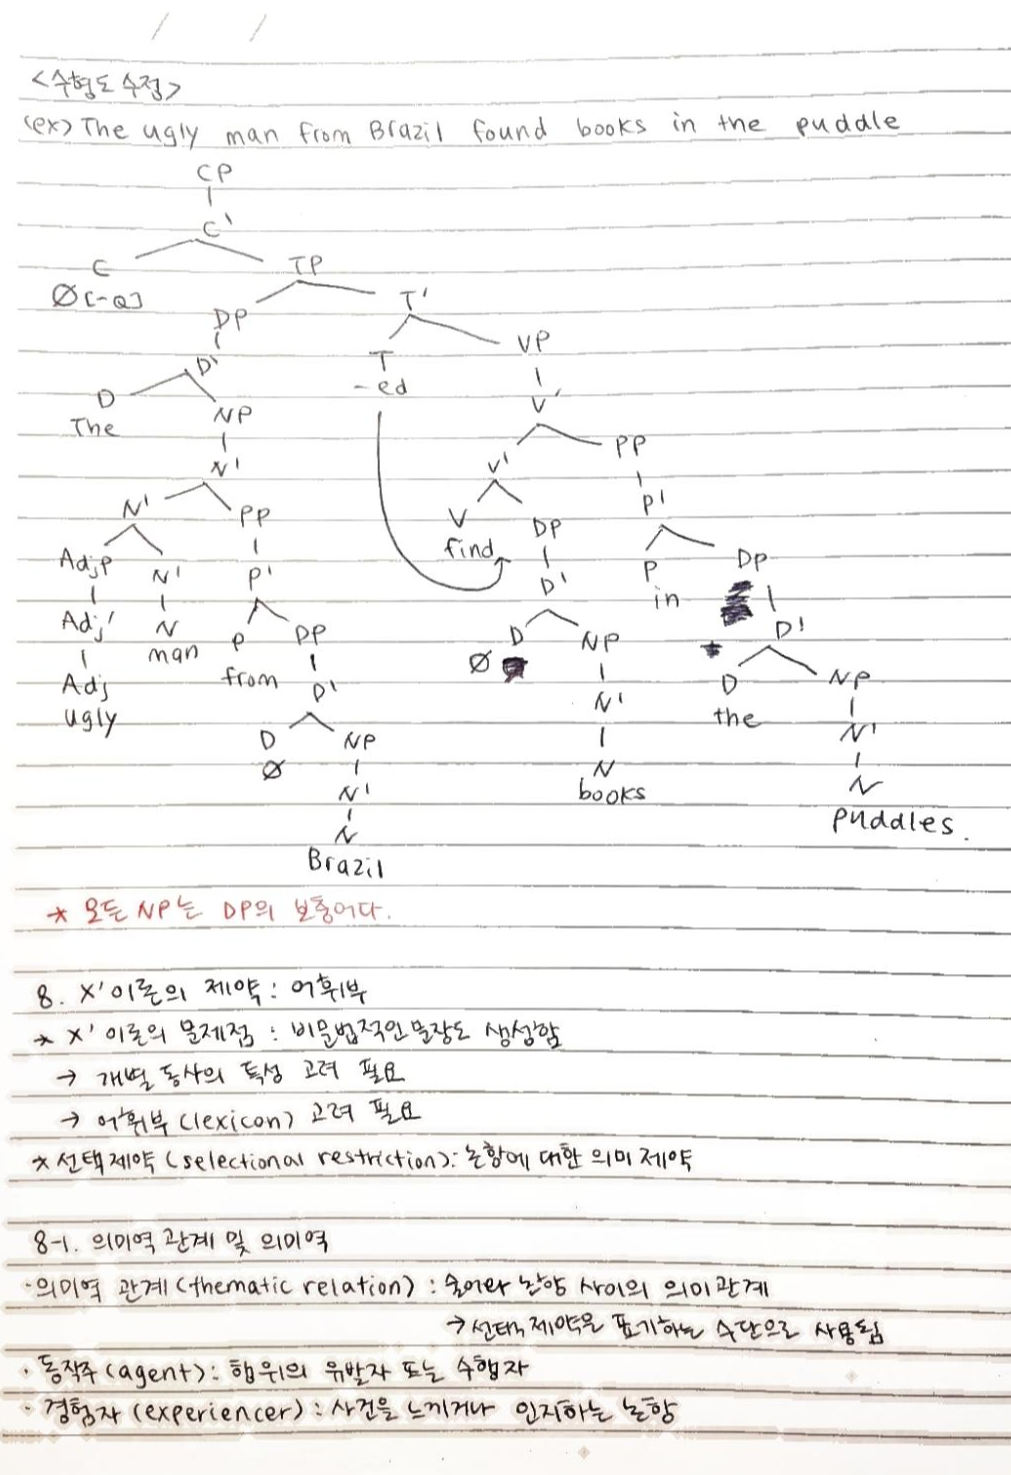 / /
<수형도 수정>
(ex) The ugly man from Brazil found books in the puddle
CP
C'
C TP
Ø[-Q] T'
DP
D' T VP
D -ed
The NP V'
N' V' PP
N' PP V DP P'
AdjP N' P' find D' P DP
Adj' N P DP in D'
Adj man from D' D NP D NP
ugly D NP Ø N' the N'
Ø N' N N
N books puddles.
Brazil
* 모든 NP는 DP의 보충어다.
8. X'이론의 제약 : 어휘부
* X' 이론의 문제점 : 비문법적인 문장도 생성함
→ 개별 동사의 특성 고려 필요
→ 어휘부 (lexicon) 고려 필요
* 선택제약 (selectional restriction): 논항에 대한 의미 제약
8-1. 의미역 관계 및 의미역
· 의미역 관계 (thematic relation) : 술어와 논항 사이의 의미관계
→ 선택 제약을 표기하는 수단으로 사용됨
· 동작주 (agent): 행위의 유발자 또는 수행자
· 경험자 (experiencer) : 사건을 느끼거나 인지하는 논항